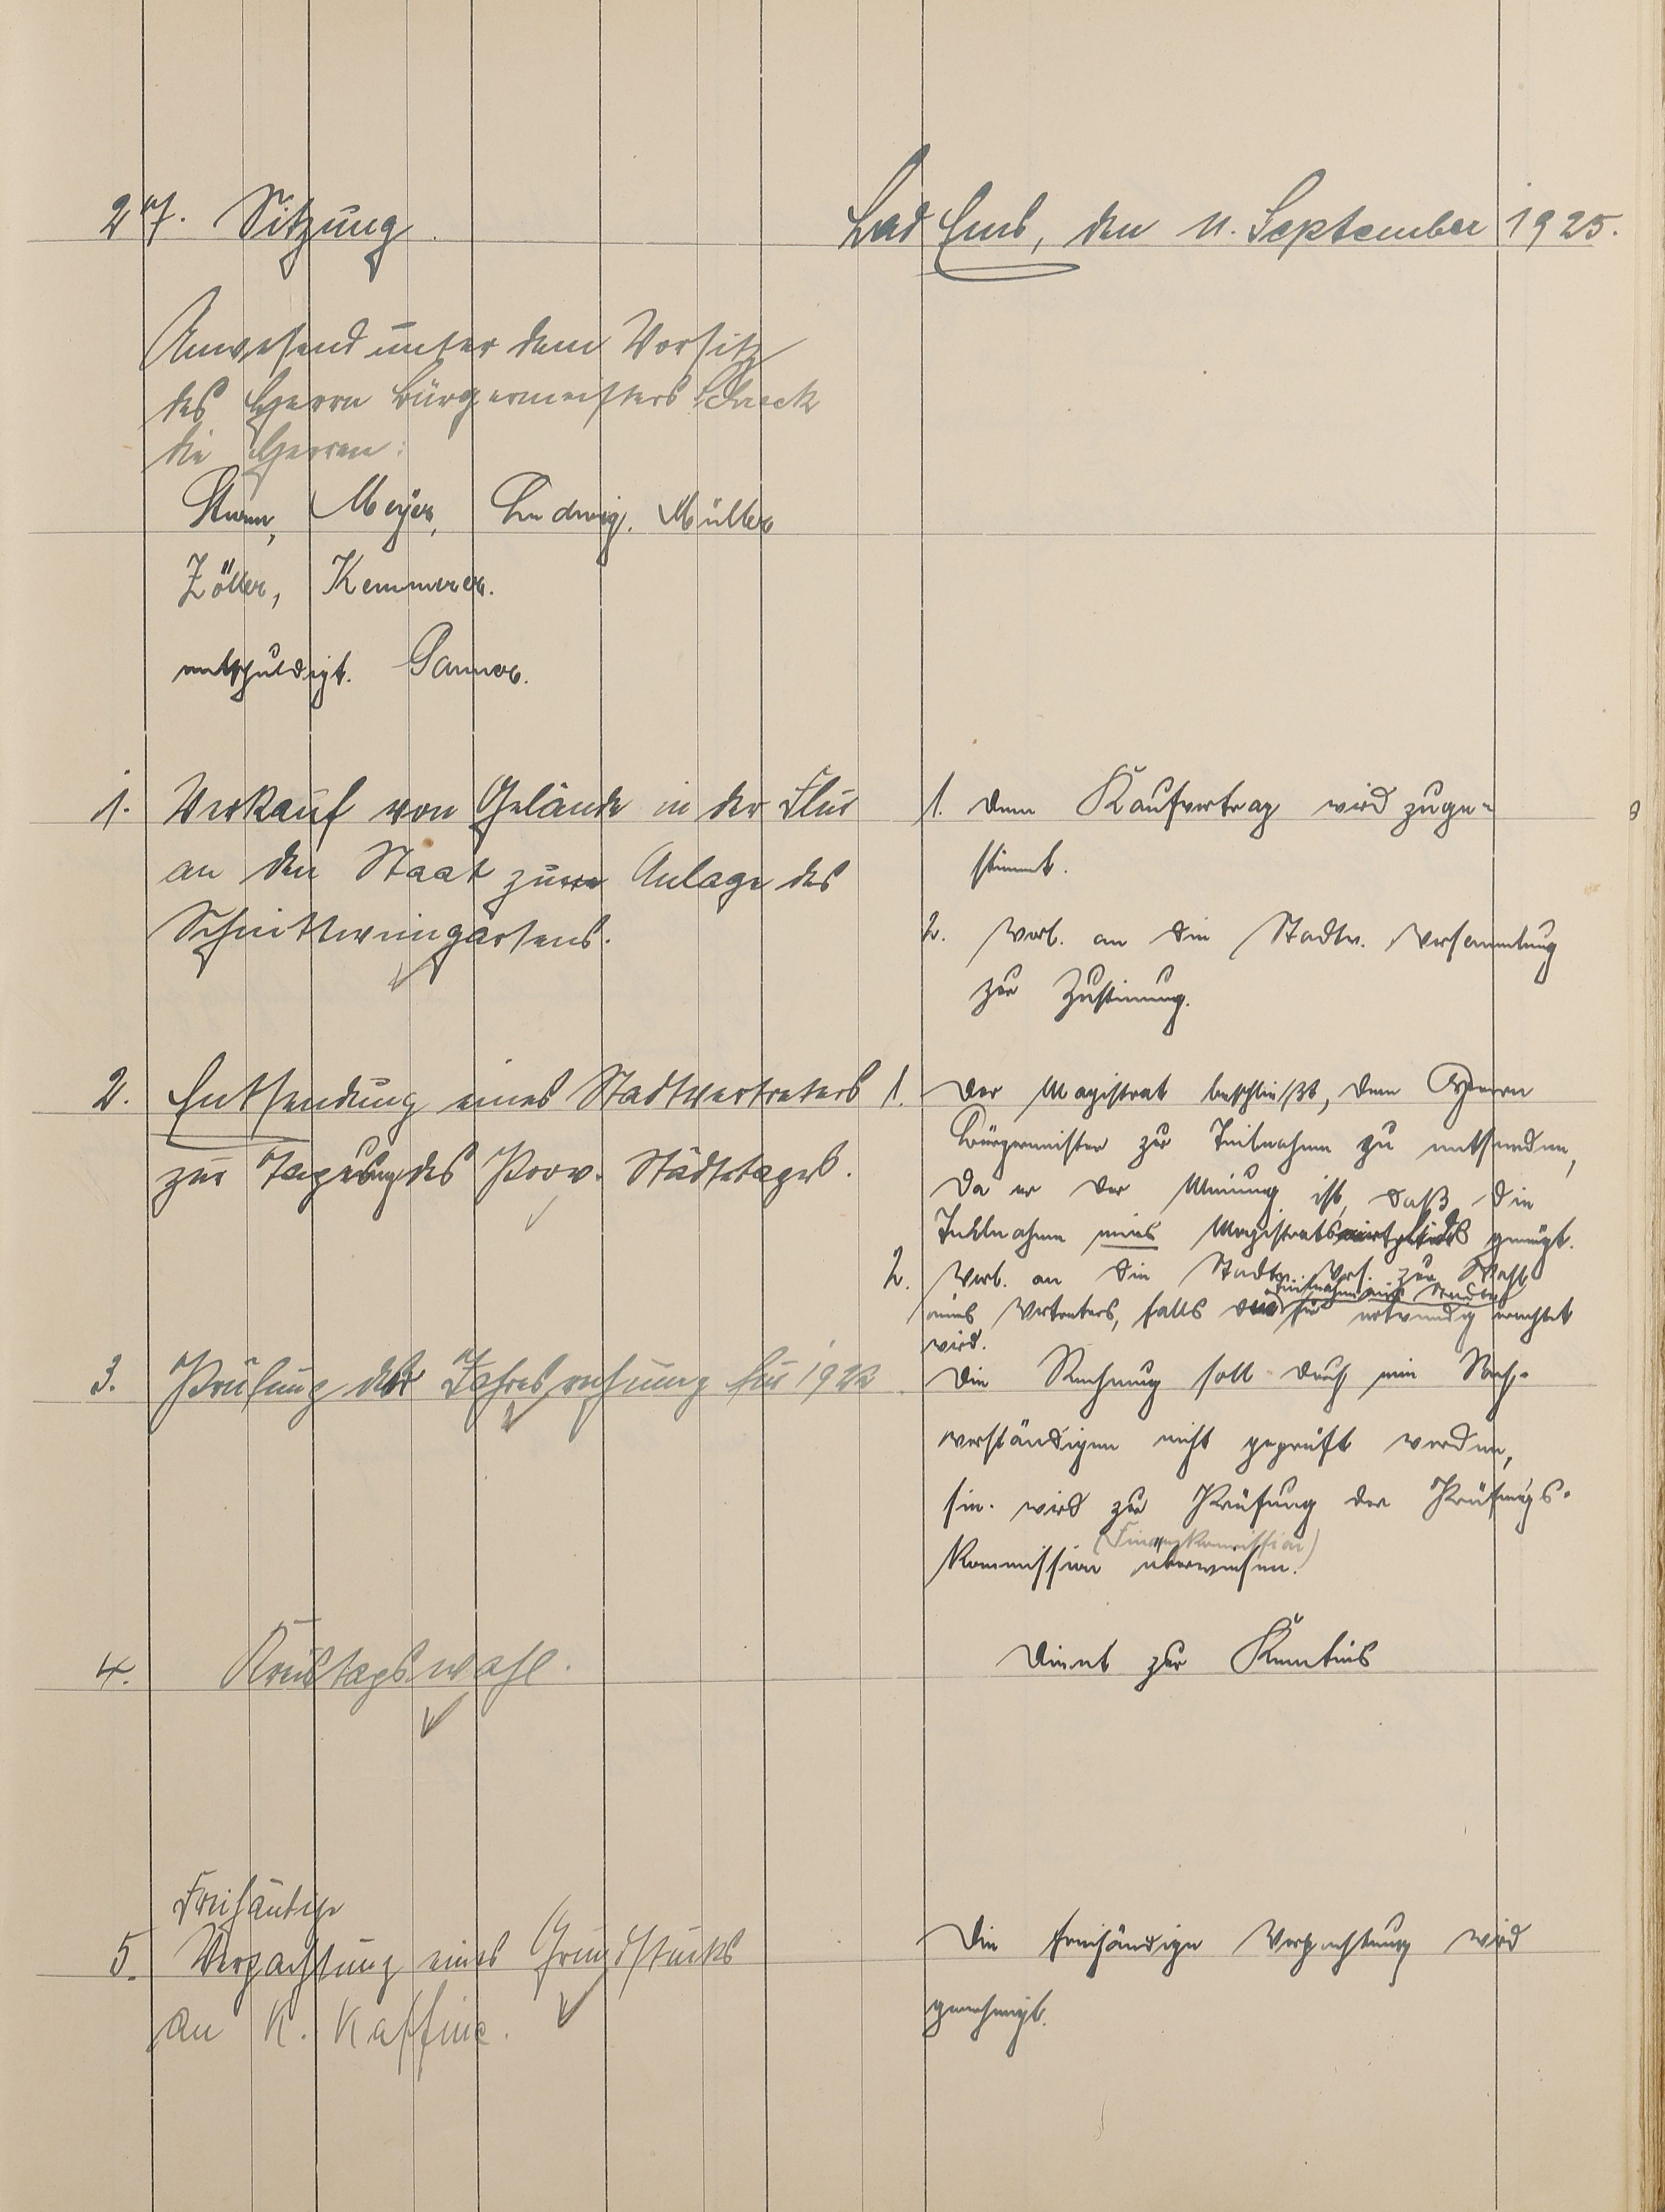 27. Sitzung.
Bad Ems, den 11. September 1925.
Anwesend unter dem Vorsitz
des Herrn Bürgermeisters Schreck
die Herren:
Sturm, Meyer, Ludwig, Müller
Zöller, Kemmerer.
entschuldigt.
1. Verkauf von Gelände in der Flur
an den Staat zur Anlage des
Schnittweingartens.
1. Dem Kaufvertrag wird zuge-
stimmt.
2. Vorl. an die Stadtv. Versammlung
zur Zustimmung.
2. Entsendung eines Stadtvertreters
zur Tagung des Prov. Städtetages.
1. Der Magistrat beschließt, den Herrn
Bürgermeister zur Teilnahme zu entsenden,
da er der Meinung ist, daß die
Teilnahme eines Magistratsmitglieds genügt.
2. Vorl. an die Stadtv. Vers. zur Wahl
eines Vertreters, falls für notwendig erachtet
wird.
3. Prüfung der Jahresrechnung für 1922
Die Rechnung soll durch ein Sach-
verständigen nicht geprüft werden,
sie wird zur Prüfung der Prüfungs-
(Finanzkommission)
Kommission überwiesen.
4. Kreistagswahl.
Dient zur Kenntnis
Freihändige
5. Verpachtung eines Grundstücks
an K. Kaffine.
Die freihändige Verpachtung wird
genehmigt.